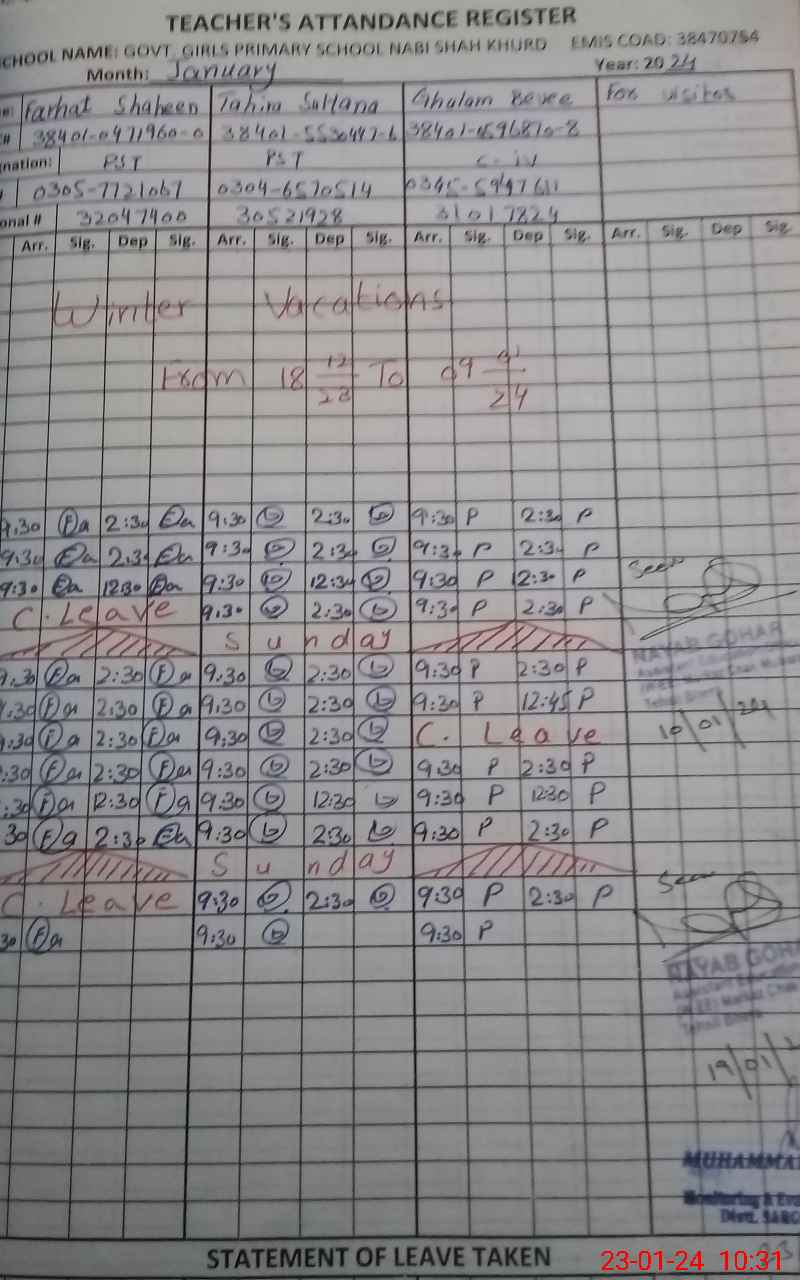 TEACHER'S ATTANDANCE REGISTER
CHOOL NAME: GOVT. GIRLS PRIMARY SCHOOL NABI SHAH KHURD EMIS COAD: 38470754
Month: January Year: 2024
Farhat Shaheen Tahira Sultana Ghulam Bevee For visitos
# 38401-0471960-0 38401-5530447-6
nation: PST PST C-iv
0305-7721067 0304-6570514
onal # 32047400 30521928 31017824
Arr. Sig. Dep Sig. Arr. Sig. Dep Sig. Arr. Sig. Dep Sig. Arr. Sig. Dep Sig
Winter Vacations
From 18 12 To 09
23 24
9:30 Fa 2:30 Fa 9:30 2:30 9:30 P 2:30 P
9:30 Fa 2:30 Fa 9:30 2:30 9:30 P 2:30 P
9:30 Fa 12:30 Fa 9:30 12:30 9:30 P 12:30 P Seen
C. Leave 9:30 2:30 9:30 P 2:30 P
Sunday NAYAB GOHAR
9:30 Fa 2:30 Fa 9:30 2:30 9:30 P 2:30 P
:30 Fa 2:30 Fa 9:30 2:30 9:30 P 12:45 P
:30 Fa 2:30 Fa 9:30 2:30 C. Leave /01/24
:30 Fa 2:30 Fa 9:30 2:30 9:30 P 2:30 P
:30 Fa 12:30 Fa 9:30 12:30 9:30 P 1230 P
30 Fa 2:30 Fa 9:30 2:30 9:30 P 2:30 P
Sunday
C. Leave 9:30 2:30 9:30 P 2:30 P Seen
30 Fa 9:30 9:30 P
NAYAB GOHA
19/01/
MUHAMMA
Monitoring & Eva
Distt. SARG
STATEMENT OF LEAVE TAKEN
23-01-24 10:31